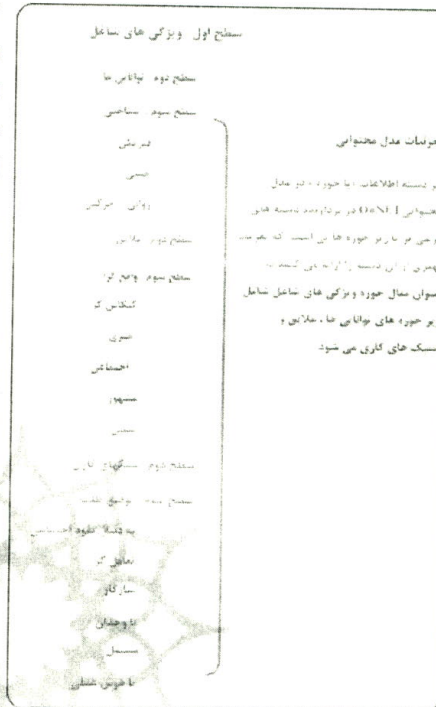 سطح اول ویژگی های شاغل
سطح دوم توانایی ها
سطح سوم شناختی
فیزیکی
حسی
روانی حرکتی
سطح دوم علایق
سطح سوم واقع گرا
کنکاش گر
هنری
اجتماعی
متهور
سنتی
سطح دوم سبکهای کاری
سطح سوم توفیق طلب
به دنبال نفوذ اجتماعی
تعامل گر
سازگار
با وجدان
مستقل
با هوش عملی
جزئیات مدل محتوایی
هر دسته اطلاعات (یا حوزه) در مدل
محتوایی O*NET در بردارنده دسته های
فرعی در زیر حوزه ها
این دسته را ارائه می کنند. به
عنوان مثال حوزه ویژگی های شاغل شامل
زیر حوزه های توانایی ها، علایق و
سبک های کاری می شود.